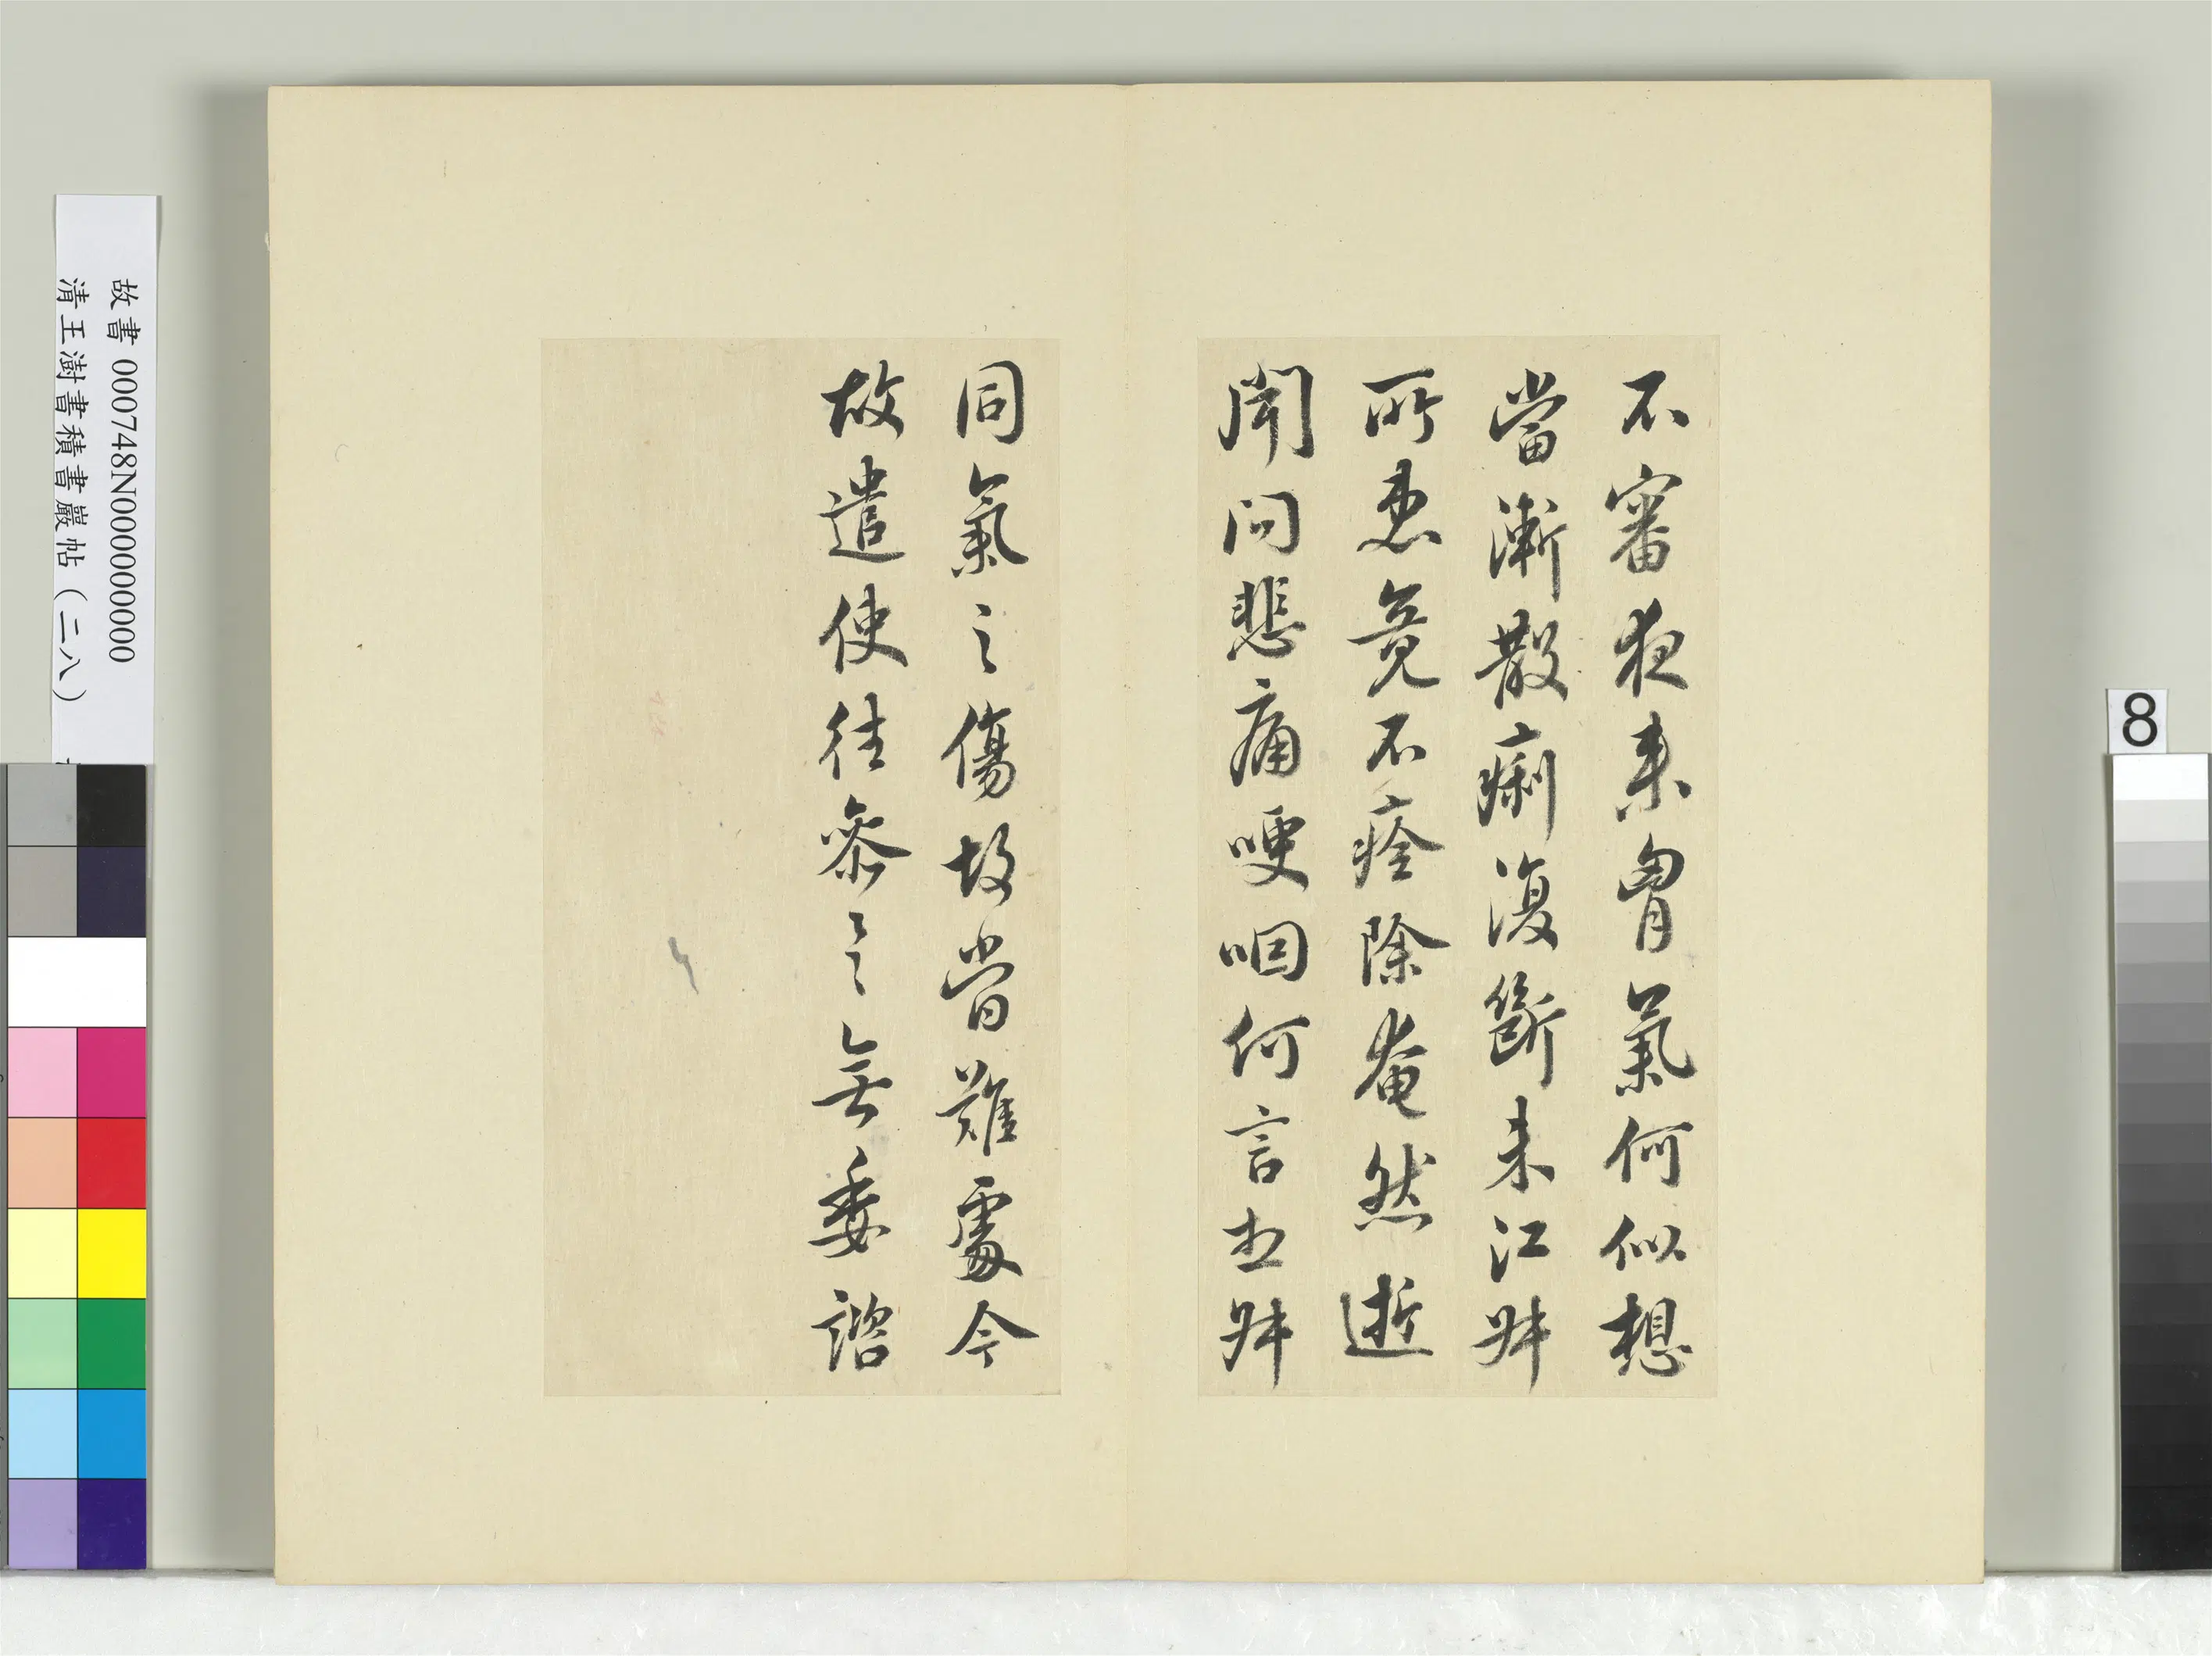 不審夜来胷氣何似想
當漸散痢復斷未江叔
所患竟不痊除奄然逝
聞問悲痛哽咽何言叔
同氣之傷故當難處今
故遣使往參之無委諮
故書 000748N000000000
清王澍書積書巖帖(二八)
8